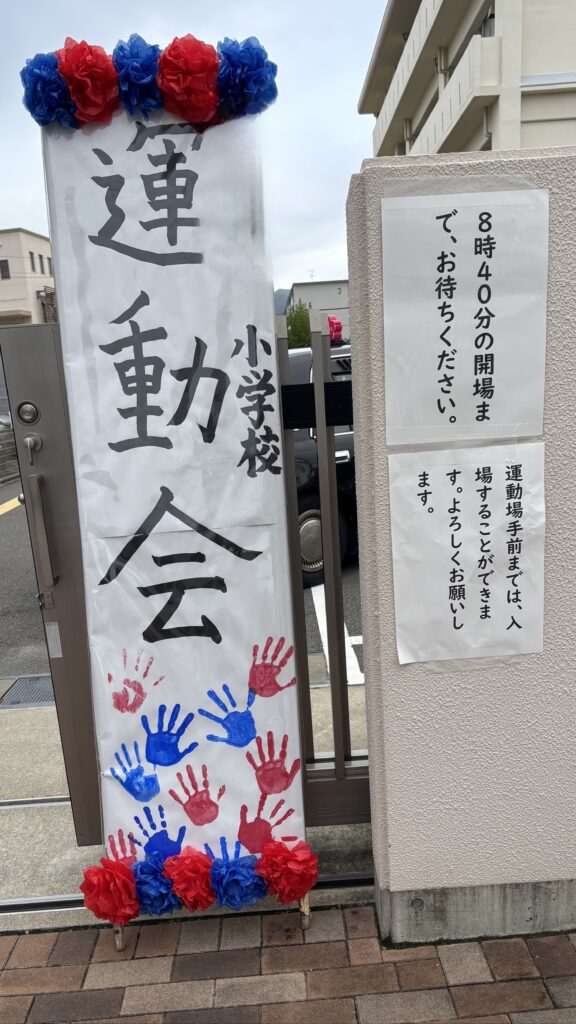 運動会
小学校
8時40分の開場ま
で、お待ちください。
運動場手前までは、入
場することができま
す。よろしくお願いし
ます。
3